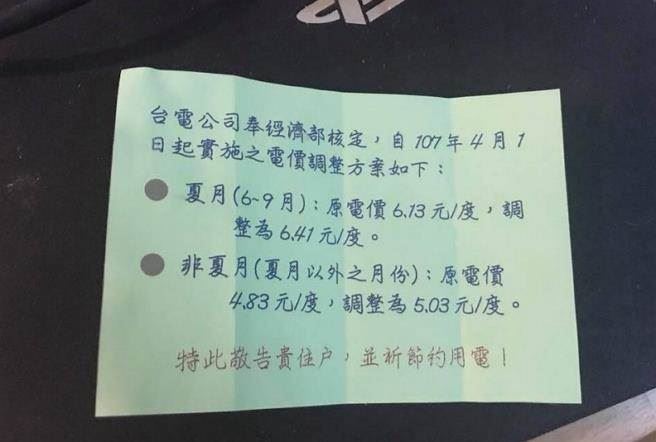 台電公司奉經濟部核定，自 107 年 4 月 1
日起實施之電價調整方案如下：
● 夏月(6~9 月)：原電價 6.13 元/度，調
整為 6.41 元/度。
● 非夏月(夏月以外之月份)：原電價
4.83 元/度，調整為 5.03 元/度。
特此敬告貴住戶，並祈節約用電！